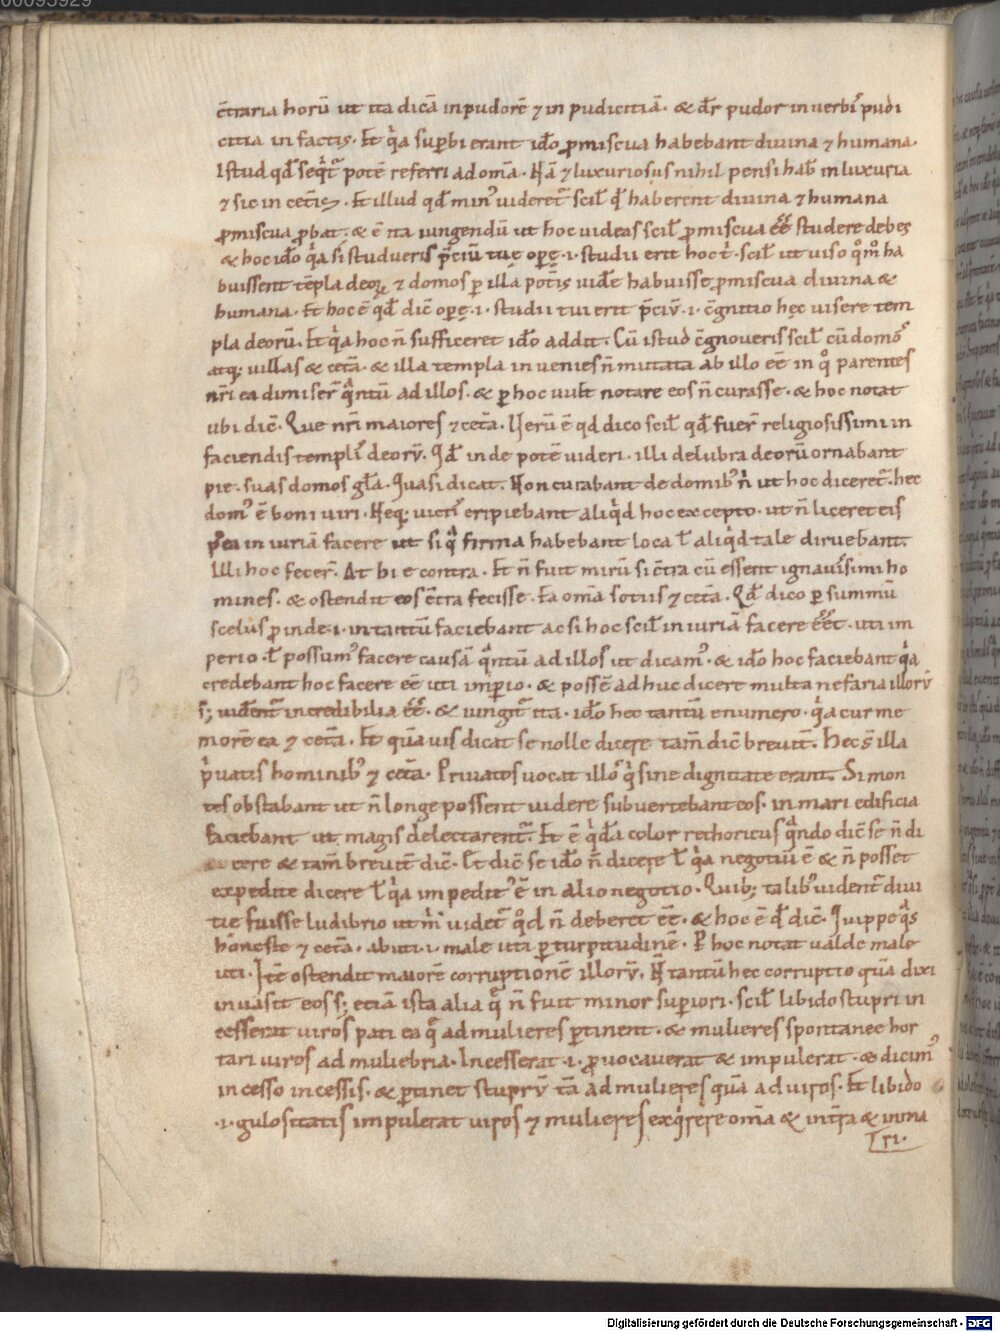 00095929
c̄traria horū ut ita dicā inpudorē ⁊ in pudicitiā · & dr̄ pudor in uerbis pudi
citia in factis · Et q̄a suꝑbi erant ido ꝓmiscua habebant diuina ⁊ humana ·
Istud qd̄ seqͥt᷑ potē referri ad om̄a · Nā ⁊ luxuriosus nihil pensi hab& in luxuria
⁊ sic in cet̄is · Et illud qd̄ min᷒ uideret᷑ scil̄ qd̄ haberent diuina ⁊ humana
ꝓmiscua ꝓbat · & ē ita iungendū ut hoc uideas scil̄ ꝓmiscua ēē studere debes
& hoc ido q̄a si studueris p̄ciū tue opę · i · studii erit hoc t᷑ · scil̄ ut uiso qͦmͦ ha
buissent tēpla deoꝝ ⁊ domos ꝑ illa potis uidē habuisse ꝓmiscua diuina &
humana · Et hoc ē qd̄ dic̄ opę · i · studii tui erit p̄ciū · i · c̄gnitio hęc uisere tem
pla deorū · Et q̄a hoc n̄ sufficeret ido addit · Cū istud c̄gnoueris scil̄ cū domos
atq; uillas & cet̄a · & illa templa inuenies n̄ mutata ab illo ēē in qͦ parentes
nr̄i ea dimiser̄ qͣntū ad illos · & ꝑ hoc uult notare eos n̄ curasse · & hoc notat
ubi dic̄ · Que nr̄i maiores ⁊ cet̄a · Uerū ē qd dico scil̄ qd̄ fuer̄ religiosissimi in
faciendis templis deorū · Qd̄ inde potē uideri · illi delubra deorū ornabant
pie · suas domos gl̄a · Quasi dicat · Non curabant de domib᷒ n̄ ut hoc diceret᷑ · hec
dom᷒ ē boni uiri · Neq; uictis eripiebant aliqͥd hoc excepto · ut n̄ liceret eis
p̄ea iniuriā facere ut si qͣ firma habebant loca l̄ aliqͥd tale diruebant ·
Illi hoc fecer̄ · At hi e contra · Et n̄ fuit mirū si c̄tra cū essent ignauissimi ho
mines · & ostendit eos c̄tra fecisse · Ea om̄a sotiis ⁊ cet̄a · Qd̄ dico ꝑ summū
scelus ꝑinde · i · in tantū faciebant ac si hoc scil̄ iniuriā facere ēēt · uti im
perio · l̄ possum᷒ facere causā qͣntū ad illos ut dicam᷒ · & ido hoc faciebant q̄a
credebant hoc facere ēē uti imꝑio · & possē adhuc dicere multa nefaria illorū
s; uident᷑ incredibilia ēē · & iungit᷑ ita · ido hec tantū enumero · q̄a cur me
morē ea ⁊ cet̄a · Et quāuis dicat se nolle dicere tam̄ dic̄ breuit᷑ · Hec s̄ illa
pͥuatis hominib᷒ ⁊ cet̄a · Priuatos uocat illos qͥ sine dignitate erant · Si mon
tes obstabant ut n̄ longe possent uidere subuertebant eos · in mari edificia
faciebant ut magis delectarent᷑ · Et ē qͥdā color rethoricus qͣndo dic̄ se n̄ di
cere & tam̄ breuit̄ dic̄ · l̄t dic̄ se ido n̄ dicere l̄ q̄a negotiū ē & n̄ posset
expedite dicere l̄ q̄a impedit᷒ ē in alio negotio · Quib; talib᷒ uident᷑ diui
tie fuisse ludibrio ut mͥ uidet᷑ qͦd n̄ deberet ēē · & hoc ē qd̄ dic̄ · Quippe qͣs
honeste ⁊ cet̄a · abuti · i · male uti ꝑ turpitudinē · P hoc notat ualde male
uti · Itē ostendit maiorē corruptionē illorū · N̄ tantū hec corruptio quā dixi
inuasit eos s; etiā ista alia q̄ n̄ fuit minor suꝑiori · scil̄ libido stupri in
cesserat uiros pati ea q̄ ad mulieres ꝑtinent · & mulieres spontanee hor
tari uiros ad muliebria · Incesserat · i · ꝓuocauerat & impulerat · & dicim᷒
incesso incessis · & ꝑtinet stuprū tā ad mulieres quā ad uiros · Et libido
· i · gulositatis impulerat uiros ⁊ mulieres exqͥrere om̄a & int̄ra & in ma
ri ·
Digitalisierung gefördert durch die Deutsche Forschungsgemeinschaft - DFG